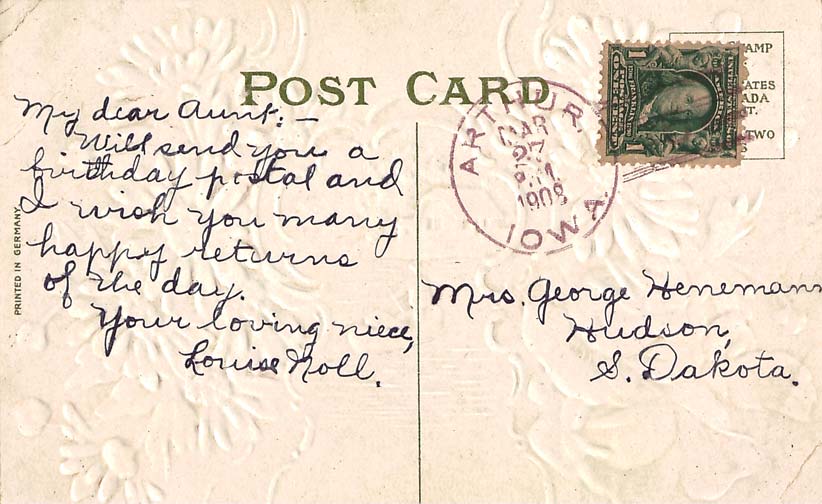 POST CARD
My dear Aunt: —
Will send you a
birthday postal and
I wish you many
happy returns
of the day.
Your loving niece,
Louise Noll.
PRINTED IN GERMANY
ARTHUR,
MAR
27
1908
IOWA.
1
1
AMP
TATES
ADA
TWO
Mrs. George Henemann
Hudson,
S. Dakota.